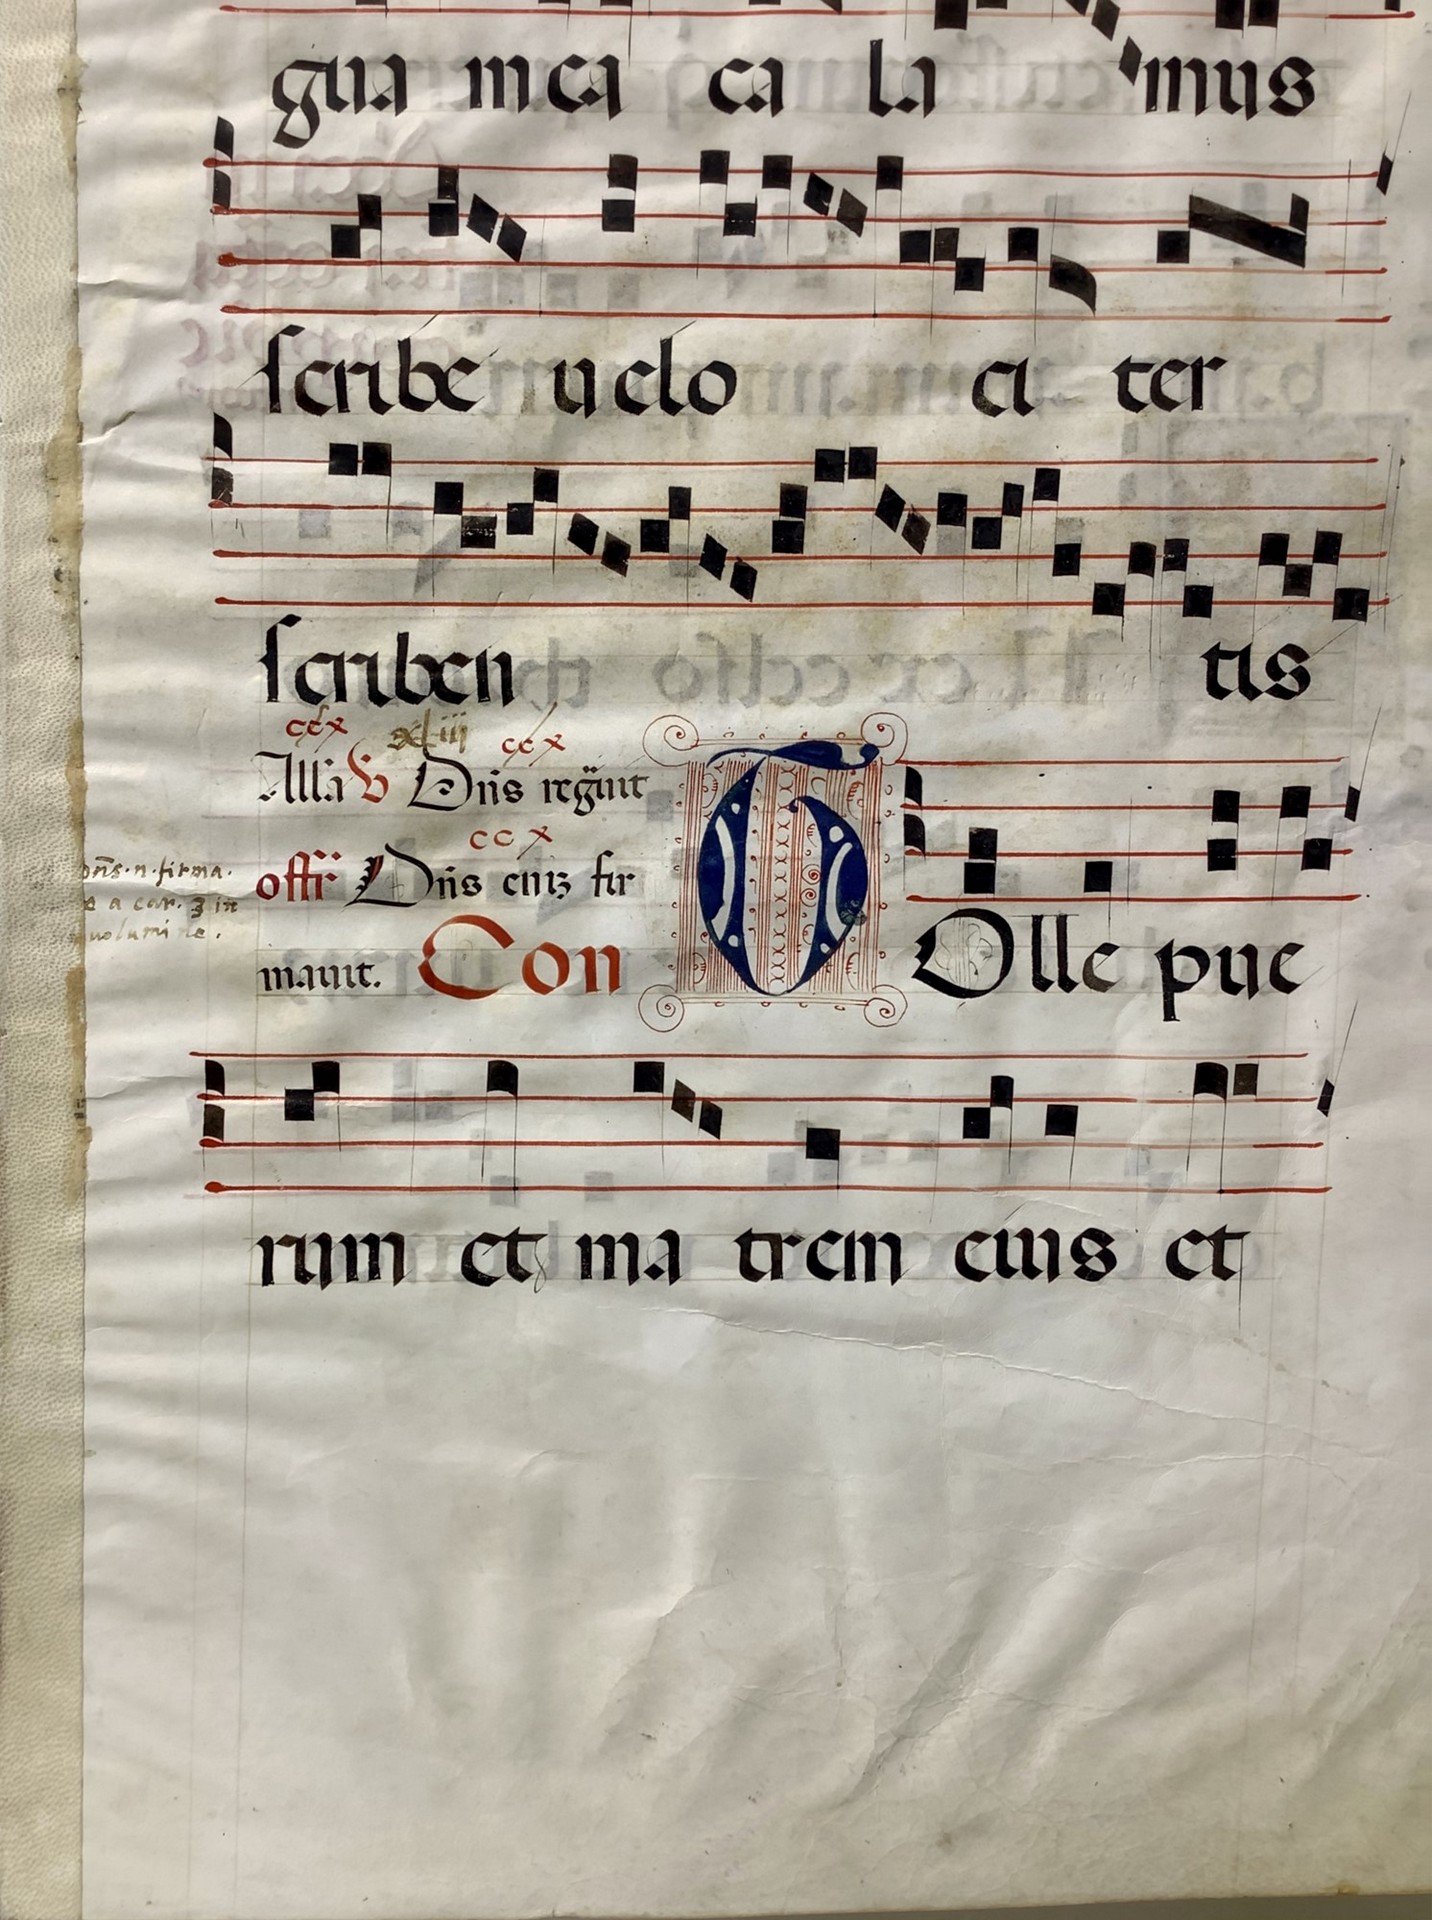 gua mea ca la mus
scribe uelo ci ter
scriben tis
ccx xliii ccx
All'a V Dn̄s regn̄ut
ccx
offr̄ Dn̄s eniz fir
mauit. Con TOlle pue
dn̄s. n. firma.
a car. 3 in
uolumine.
rum et ma trem eius et